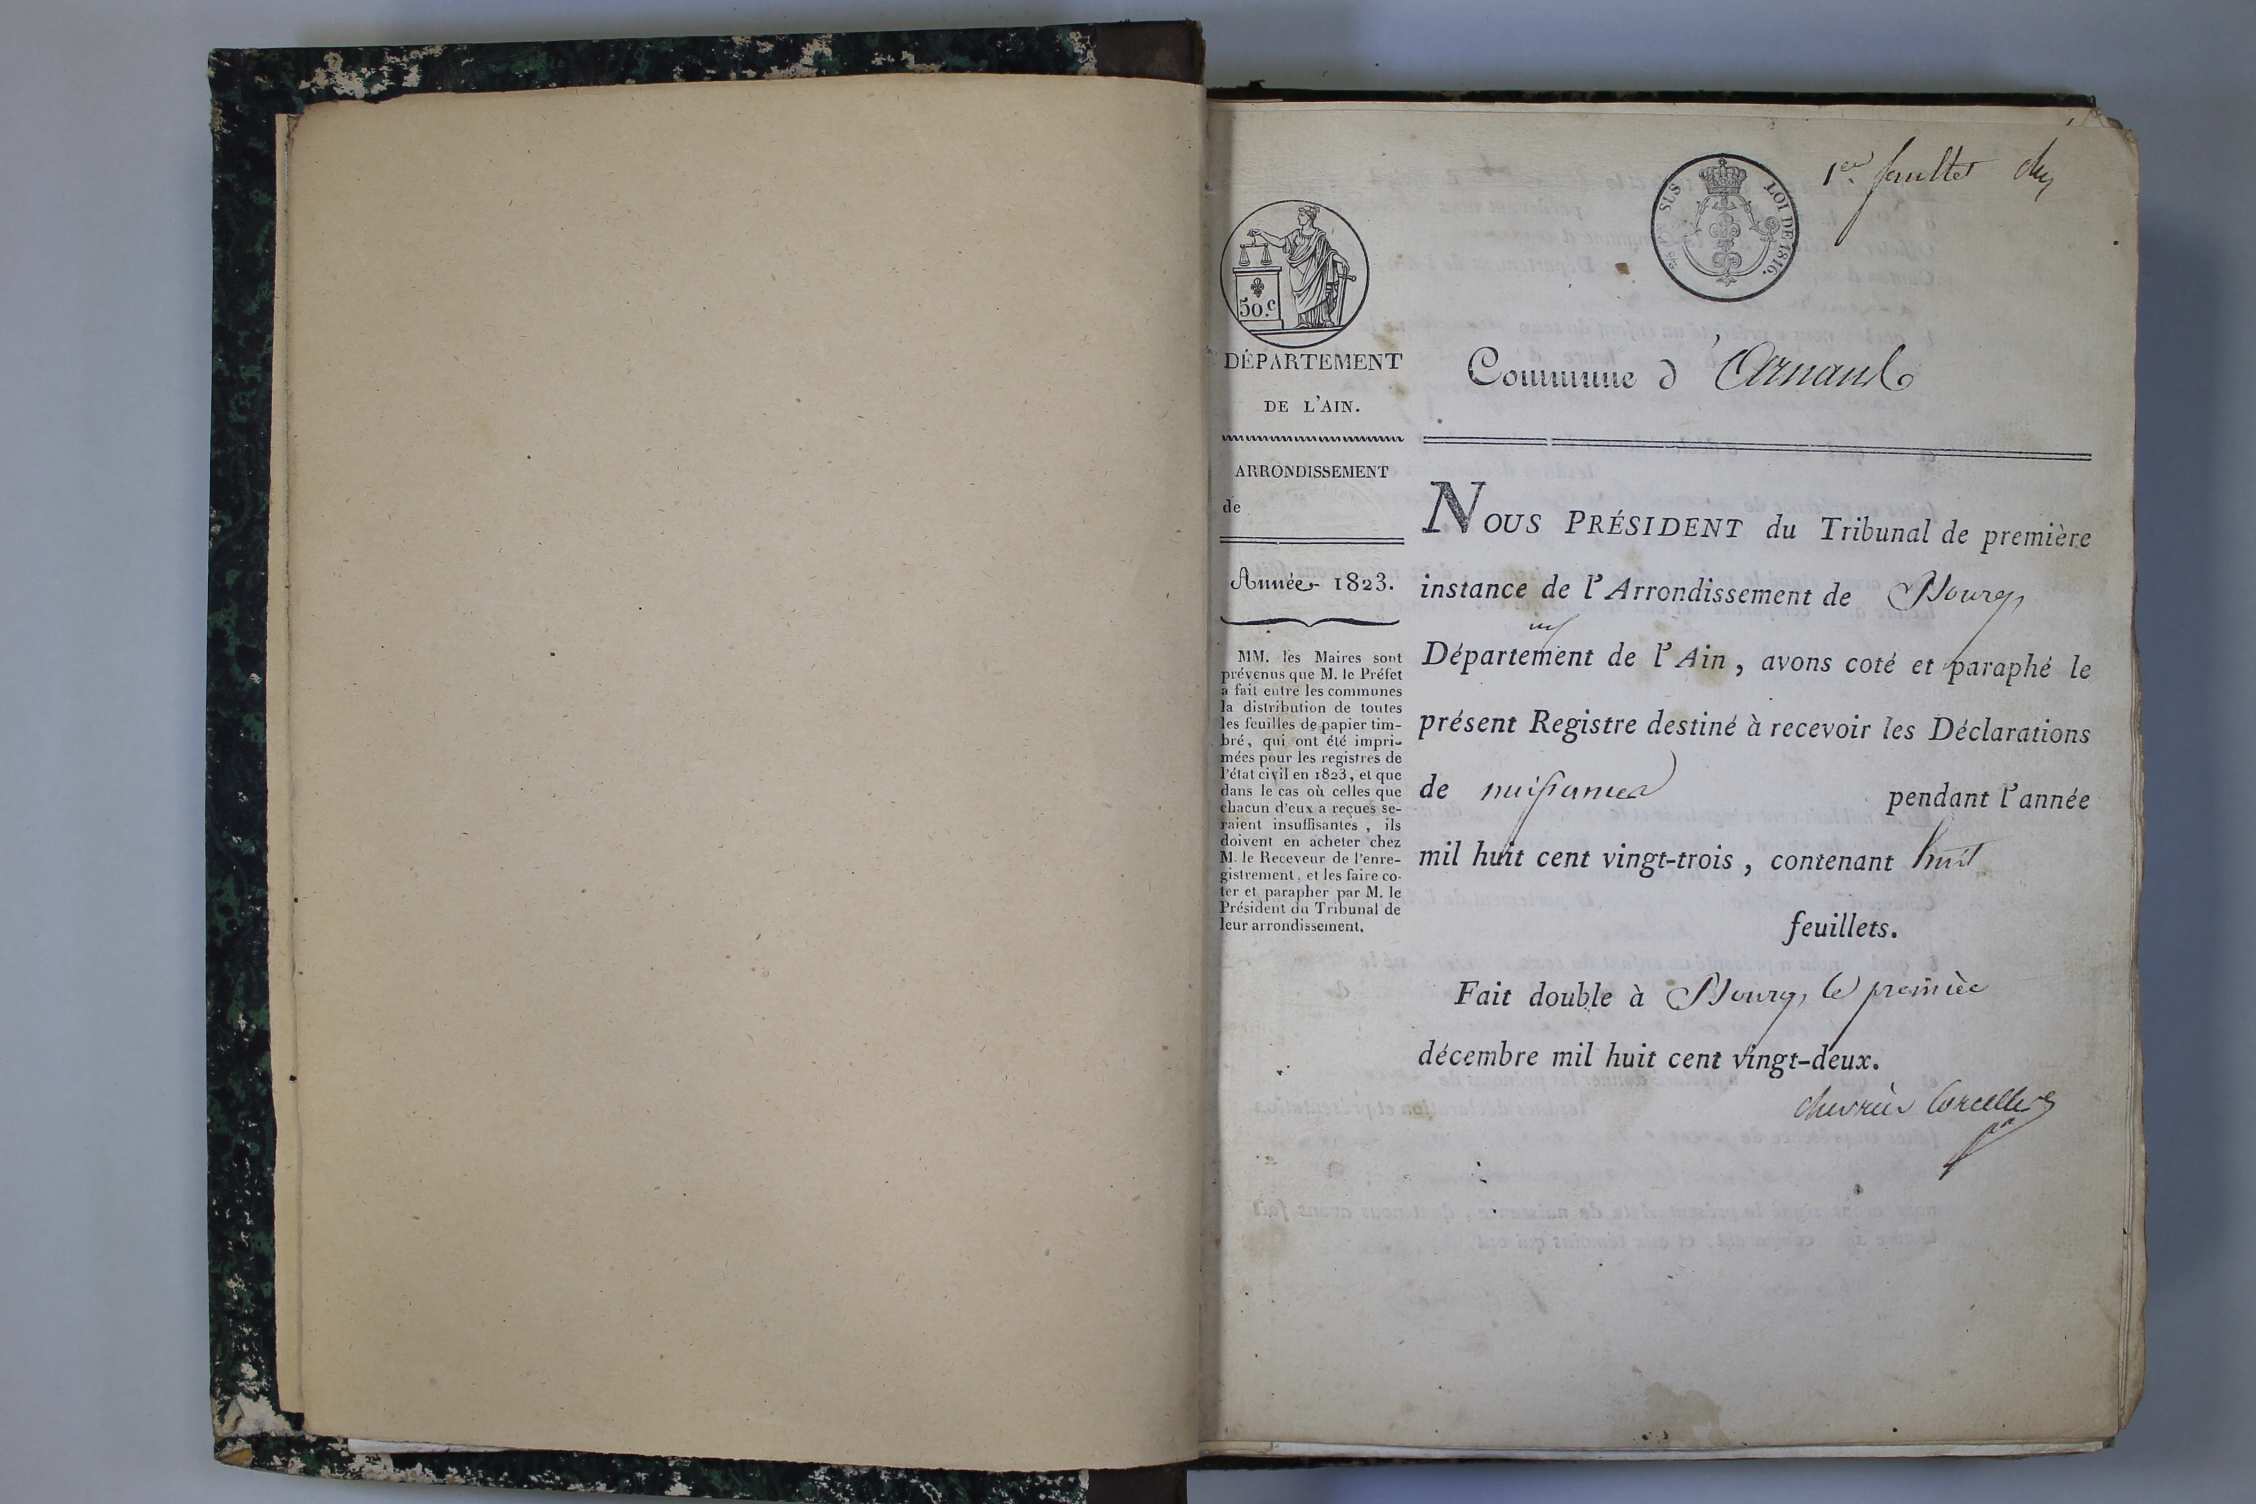 1er feuillet
LOI DE 1816.
50.c
DÉPARTEMENT
DE L'AIN.
ARRONDISSEMENT
de
Année 1823.
MM. les Maires sont
prévenus que M. le Préfet
a fait entre les communes
la distribution de toutes
les feuilles de papier tim-
bré, qui ont été impri-
mées pour les registres de
l'état civil en 1823, et que
dans le cas où celles que
chacun d'eux a reçues se-
raient insuffisantes, ils
doivent en acheter chez
M. le Receveur de l'enre-
gistrement, et les faire co-
ter et parapher par M. le
Président du Tribunal de
leur arrondissement.
Commune d'
NOUS PRÉSIDENT du Tribunal de première
instance de l'Arrondissement de Bourg
Département de l'Ain, avons coté et paraphé le
présent Registre destiné à recevoir les Déclarations
de naissances pendant l'année
mil huit cent vingt-trois, contenant huit
feuillets.
Fait double à Bourg, le premier
décembre mil huit cent vingt-deux.
chevrier Corcelles